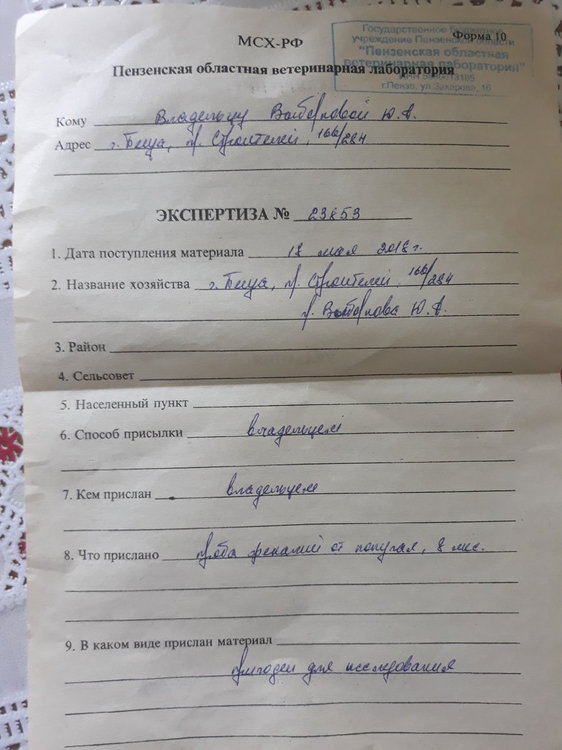 МСХ-РФ
Форма 10
Пензенская областная ветеринарная лаборатория
Государственное бюджетное
учреждение Пензенской области
"Пензенская областная
ветеринарная лаборатория"
г.Пенза, ул.Захарова, 16
Кому Владельцу Ю.А.
Адрес г. Пенза, пр. Строителей, 166/284
ЭКСПЕРТИЗА № 23853
1. Дата поступления материала 18 мая 2018 г.
2. Название хозяйства г. Пенза, пр. Строителей, 166/284
Ю.А.
3. Район
4. Сельсовет
5. Населенный пункт
6. Способ присылки владельцем
7. Кем прислан владельцем
8. Что прислано проба фекалий от попугая, 8 мес.
9. В каком виде прислан материал
пригоден для исследования